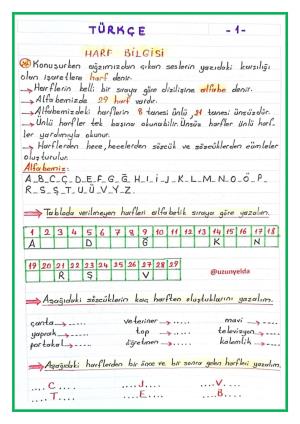 TÜRKÇE - 1 -
HARF BİLGİSİ
Konuşurken ağzımızdan çıkan seslerin yazıdaki karşılığı
olan işaretlere harf denir.
→ Harflerin belli bir sıraya göre dizilişine alfabe denir.
→ Alfabemizde 29 harf vardır.
→ Alfabemizdeki harflerin 8 tanesi ünlü, 21 tanesi ünsüzdür.
→ Ünlü harfler tek başına okunabilir. Ünsüz harfler ünlü harf-
ler yardımıyla okunur.
→ Harflerden hece, hecelerden sözcük ve sözcüklerden cümleler
oluşturulur.
Alfabemiz:
A_B_C_Ç_D_E_F_G_Ğ_H_I_İ_J_K_L_M_N_O_Ö_P_
R_S_Ş_T_U_Ü_V_Y_Z.
→ Tabloda verilmeyen harfleri alfabetik sıraya göre yazalım.
1 2 3 4 5 6 7 8 9 10 11 12 13 14 15 16 17 18
A D Ğ K N
19 20 21 22 23 24 25 26 27 28 29
R Ş V
@uzunyelda
→ Aşağıdaki sözcüklerin kaç harften oluştuklarını yazalım.
çanta → ..... veteriner → ..... mavi → .....
yaprak → ..... top → ..... televizyon → .....
portakal → ..... öğretmen → ..... kalemlik → .....
→ Aşağıdaki harflerden bir önce ve bir sonra gelen harfleri yazalım.
.... C .... .... J .... .... V ....
.... T .... .... E .... .... B ....